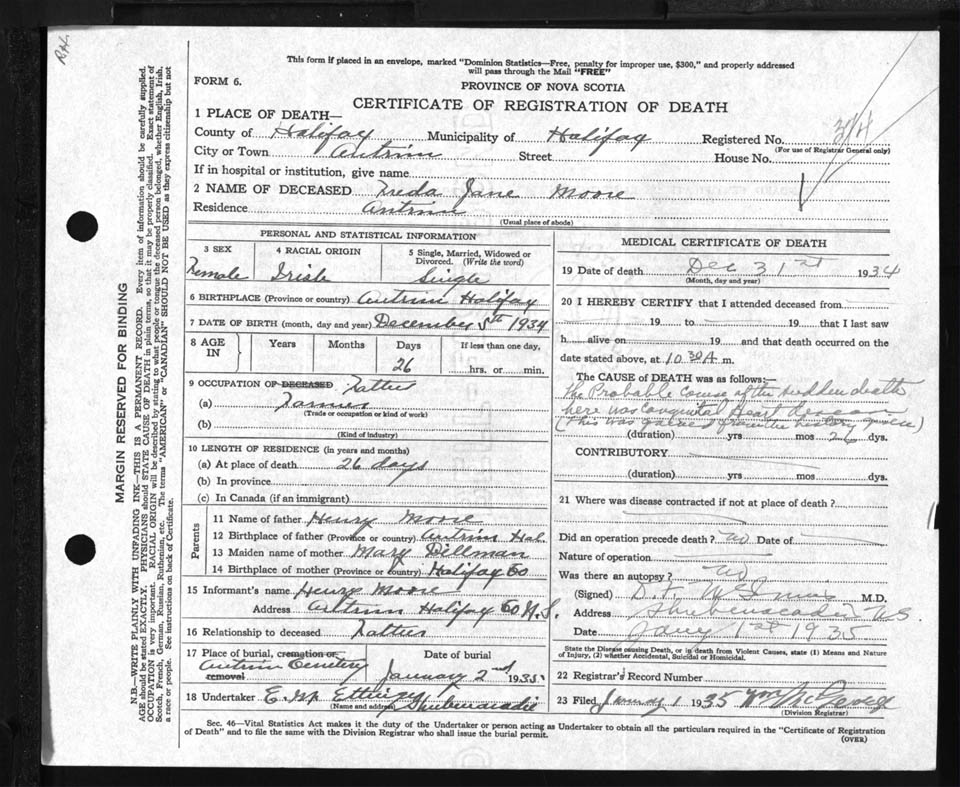 R.H.
This form if placed in an envelope, marked "Dominion Statistics—Free, penalty for improper use, $300," and properly addressed
will pass through the Mail "FREE"
FORM 6.
PROVINCE OF NOVA SCOTIA
CERTIFICATE OF REGISTRATION OF DEATH
1 PLACE OF DEATH—
County of Halifax Municipality of Halifax Registered No.
(For use of Registrar General only)
City or Town Antrim Street House No.
If in hospital or institution, give name
2 NAME OF DECEASED Freda Jane Moore
Residence Antrim
(Usual place of abode)
PERSONAL AND STATISTICAL INFORMATION
3 SEX 4 RACIAL ORIGIN 5 Single, Married, Widowed or
Divorced. (Write the word)
Female Irish Single
6 BIRTHPLACE (Province or country) Antrim Halifax
7 DATE OF BIRTH (month, day and year) December 5th 1934
8 AGE IN Years Months Days If less than one day,
26 hrs. or min.
9 OCCUPATION OF DECEASED Father
(a) Farmer
(Trade or occupation or kind of work)
(b)
(Kind of industry)
10 LENGTH OF RESIDENCE (in years and months)
(a) At place of death 26 days
(b) In province
(c) In Canada (if an immigrant)
Parents
11 Name of father Henry Moore
12 Birthplace of father (Province or country) Antrim Hal.
13 Maiden name of mother Mary Dillman
14 Birthplace of mother (Province or country) Halifax Co
15 Informant's name Henry Moore
Address Antrim Halifax Co N.S.
16 Relationship to deceased Father
17 Place of burial, cremation or removal Date of burial
Antrim Cemetery January 2nd 1935
18 Undertaker E. W. Ettinger
(Name and address) Shubenacadie
MEDICAL CERTIFICATE OF DEATH
19 Date of death Dec 31st 1934
(Month, day and year)
20 I HEREBY CERTIFY that I attended deceased from
19 to 19 that I last saw
h alive on 19 and that death occurred on
date stated above, at 10.30 A. m.
The CAUSE of DEATH was as follows:
The Probable Cause of the sudden death
here was Congenital Heart disease
(This was gained from the history given)
(duration) yrs mos 26 dys.
CONTRIBUTORY
(duration) yrs. mos. dys.
21 Where was disease contracted if not at place of death?
Did an operation precede death? no Date of
Nature of operation
Was there an autopsy? no
(Signed) D. F. McInnis M.D.
Address Shubenacadie N.S
Date Jany 1st 1935
State the Disease causing Death, or in death from Violent Causes, state (1) Means and Nature
of Injury, (2) whether Accidental, Suicidal or Homicidal.
22 Registrar's Record Number
23 Filed January 1 1935
(Division Registrar)
Sec. 46—Vital Statistics Act makes it the duty of the Undertaker or person acting as Undertaker to obtain all the particulars required in the "Certificate of Registration
of Death" and to file the same with the Division Registrar who shall issue the burial permit.
(OVER)
MARGIN RESERVED FOR BINDING
N.B.—WRITE PLAINLY WITH UNFADING INK—THIS IS A PERMANENT RECORD. Every item of information should be carefully supplied.
AGE should be stated EXACTLY. PHYSICIANS should STATE CAUSE OF DEATH in plain terms, so that it may be properly classified. Exact statement of
OCCUPATION is very important. RACIAL ORIGIN will be described by stating to what people or tongue the deceased person belonged, whether English, Irish,
Scotch, French, German, Russian, Ruthenian, etc. The terms "AMERICAN" or "CANADIAN" SHOULD NOT BE USED as they express citizenship but not
a race or people. See instructions on back of Certificate.